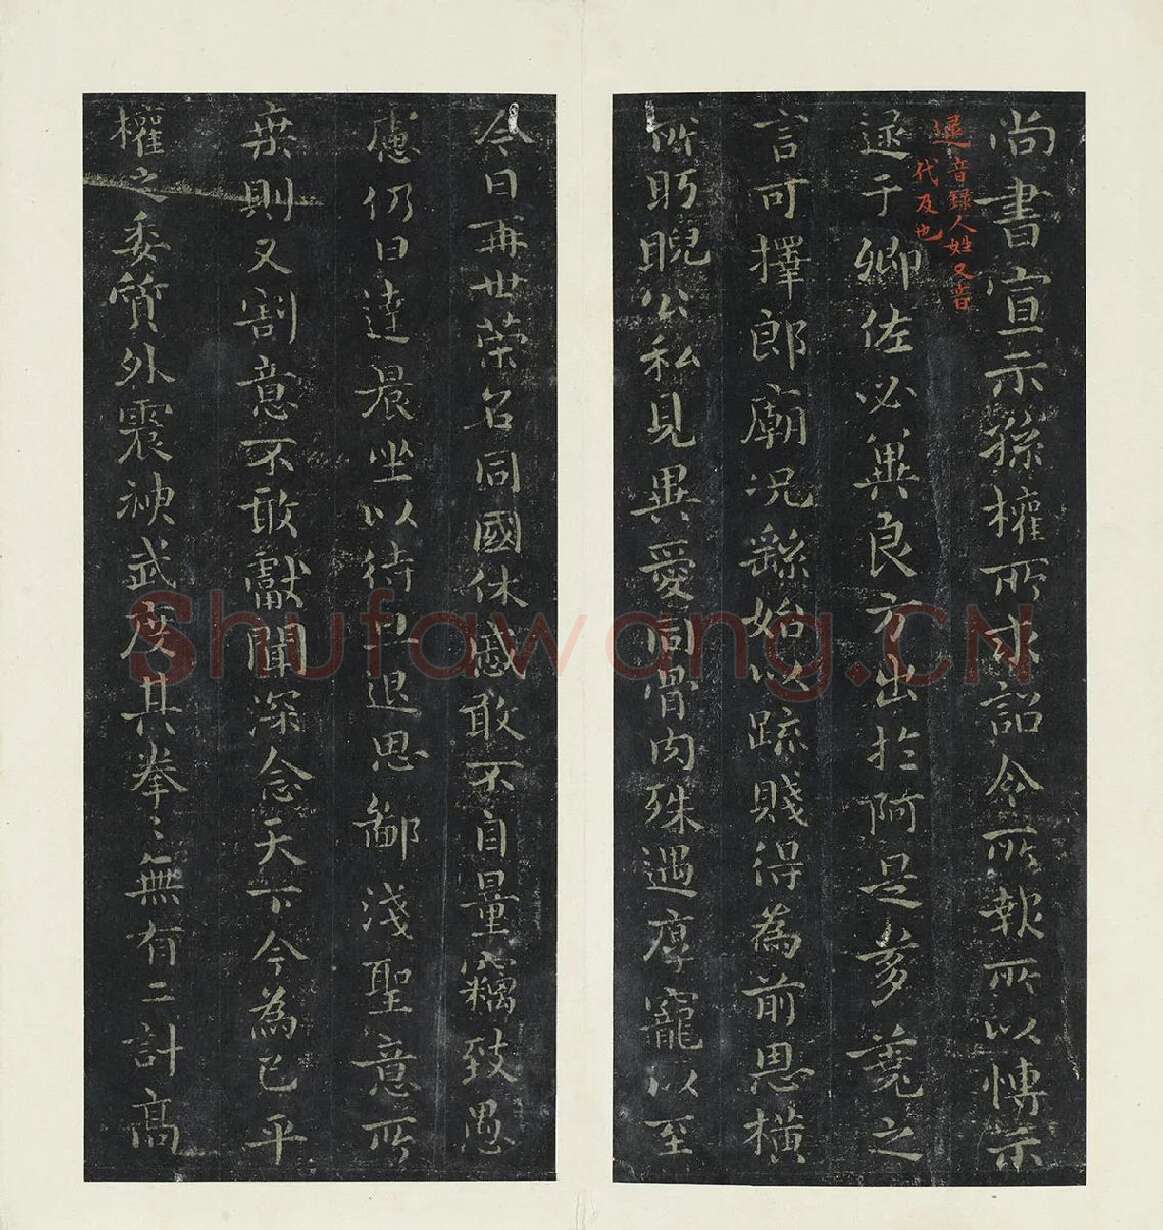 尚書宣示孫權所求詔令所報所以博示
逯音録人姓又音
代及也
逯于卿佐必冀良方出於阿是芻蕘之
言可擇郎廟況繇始以疏賤得為前恩橫
所眄睨公私見異愛同骨肉殊遇厚寵以至
今日再世榮名同國休慼敢不自量竊致愚
慮仍日達晨坐以待旦退思鄙淺聖意所
棄則又割意不敢獻聞深念天下今為已平
權之委質外震神武度其拳〻無有二計高
Shufawang.CN